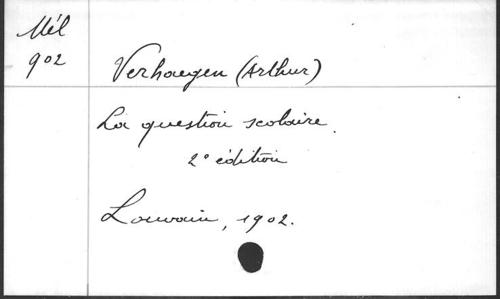 Mél
902
Verhaegen (Arthur)
La question scolaire.
2° édition
Louvain, 1902.